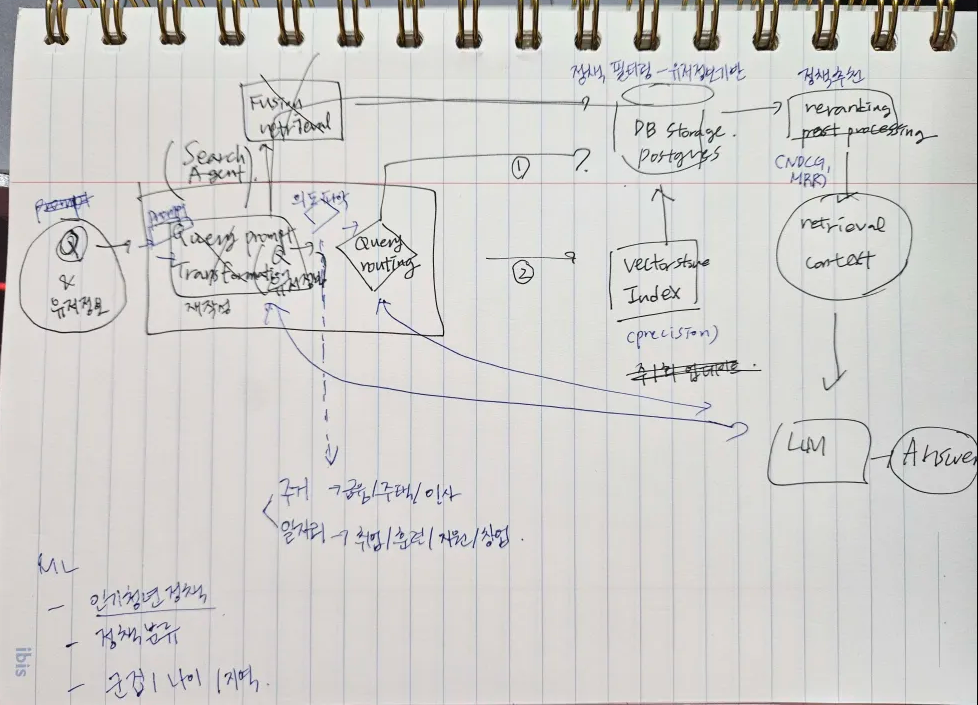 정책 필터링 - 유저정보기반
정책추천
Fusion
retrieval
DB Storage.
Postgres
reranking
post processing
(Search
Agent)
①
(NDCG,
MRR)
prompt
의도파악
Q
&
유저정보
Query prompt
Transformation
Q
유저정보
재작성
Query
routing
②
vectorstore
Index
(precision)
retrieval
context
LLM
Answer
주거 → 금융/주택/인사
일자리 → 취업/훈련/지원/창업.
ML
- 인기청년정책
- 정책분류
- 나이 / 지역.
ibis